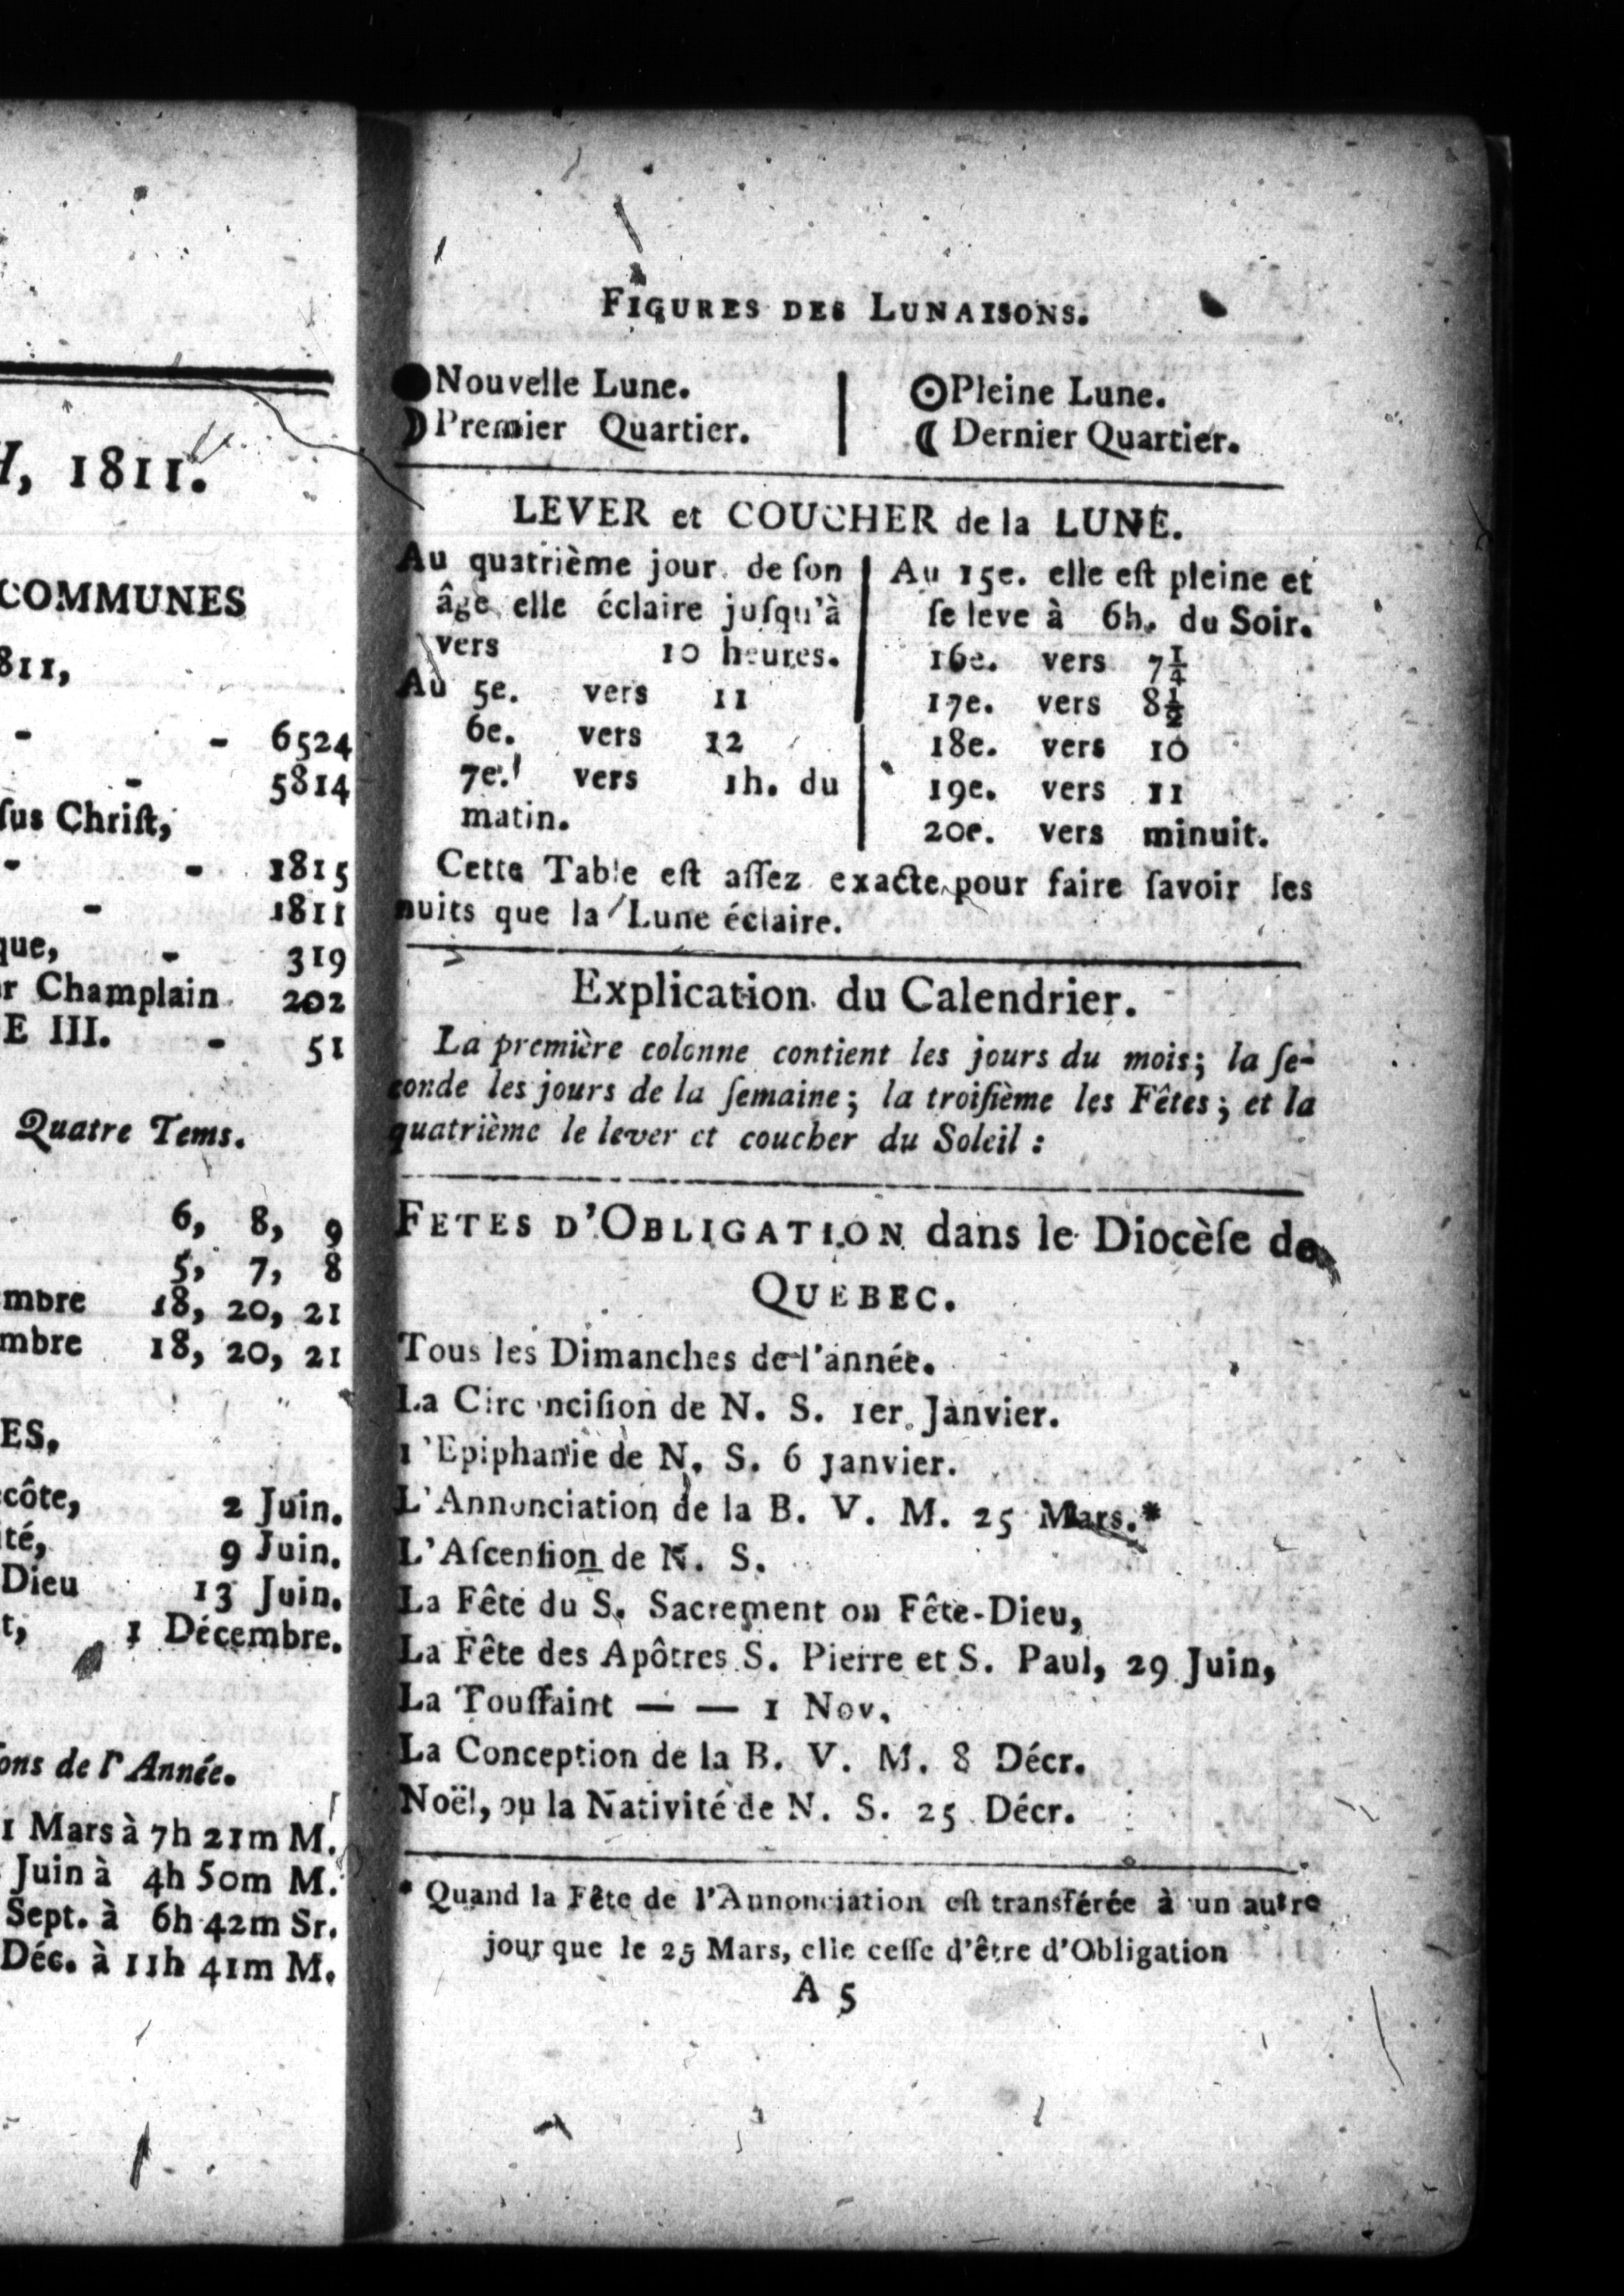 H, 1811.
COMMUNES
811,
- - 6524
- 5814
ſus Chriſt,
- - 1815
- 1811
que, - 319
r Champlain 202
E III. - 51
Quatre Tems.
6, 8, 9
5, 7, 8
mbre 18, 20, 21
mbre 18, 20, 21
ES,
côte, 2 Juin.
ité, 9 Juin.
Dieu 13 Juin.
t, 1 Décembre.
ons de l'Année.
1 Mars à 7h 21m M.
Juin à 4h 50m M.
Sept. à 6h 42m Sr.
Déc. à 11h 41m M.
FIGURES DES LUNAISONS.
Nouvelle Lune.
Premier Quartier.
Pleine Lune.
Dernier Quartier.
LEVER et COUCHER de la LUNE.
Au quatrième jour de ſon
âge elle éclaire juſqu'à
vers 10 heures.
Au 5e. vers 11
6e. vers 12
7e. vers 1h. du
matin.
Au 15e. elle eſt pleine et
ſe leve à 6h. du Soir.
16e. vers 7¼
17e. vers 8½
18e. vers 10
19e. vers 11
20e. vers minuit.
Cette Table eſt aſſez exacte pour faire ſavoir les
nuits que la Lune éclaire.
Explication du Calendrier.
La première colonne contient les jours du mois; la ſe-
conde les jours de la ſemaine; la troiſième les Fêtes; et la
quatrième le lever et coucher du Soleil :
FETES D'OBLIGATION dans le Diocèſe de
QUEBEC.
Tous les Dimanches de l'année.
La Circonciſion de N. S. 1er Janvier.
l'Epiphanie de N. S. 6 Janvier.
L'Annonciation de la B. V. M. 25 Mars.*
L'Aſcenſion de N. S.
La Fête du S. Sacrement ou Fête-Dieu,
La Fête des Apôtres S. Pierre et S. Paul, 29 Juin,
La Touſſaint — — 1 Nov.
La Conception de la B. V. M. 8 Décr.
Noël, ou la Nativité de N. S. 25 Décr.
* Quand la Fête de l'Annonciation eſt transférée à un autre
jour que le 25 Mars, elle ceſſe d'être d'Obligation
A 5